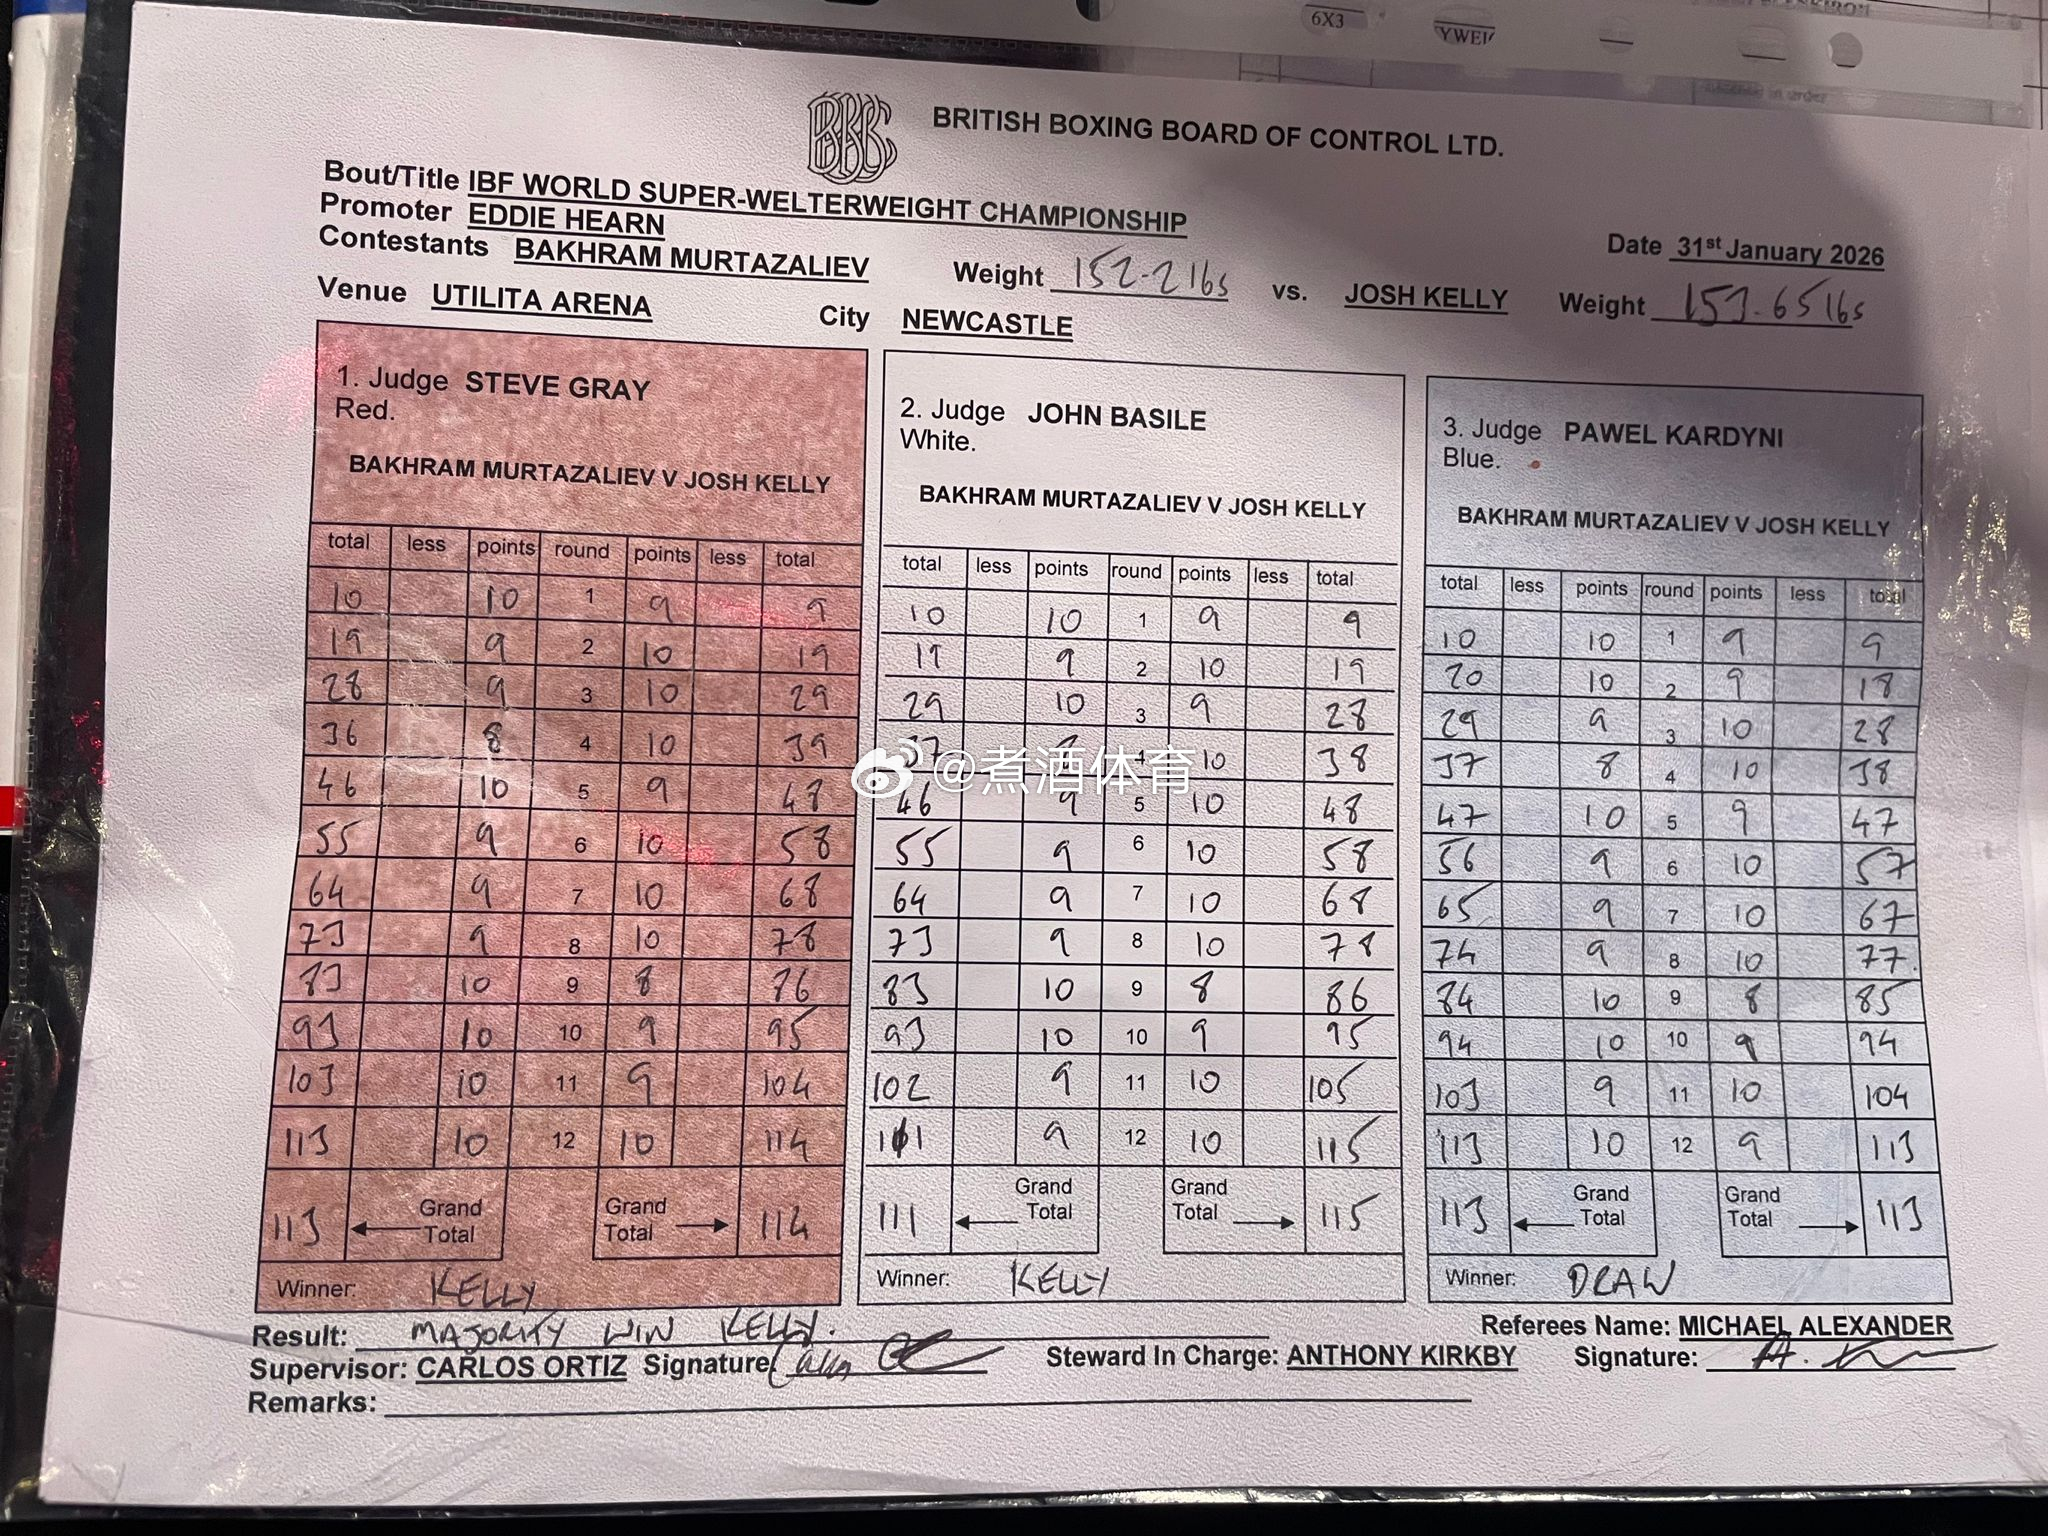 6X3
BRITISH BOXING BOARD OF CONTROL LTD.
Bout/Title IBF WORLD SUPER-WELTERWEIGHT CHAMPIONSHIP
Promoter EDDIE HEARN
Date 31st January 2026
Contestants BAKHRAM MURTAZALIEV Weight 152.2 lbs vs. JOSH KELLY Weight 153.65 lbs
Venue UTILITA ARENA City NEWCASTLE
1. Judge STEVE GRAY
Red.
BAKHRAM MURTAZALIEV V JOSH KELLY
total less points round points less total
10 10 1 9 9
19 9 2 10 19
28 9 3 10 29
36 8 4 10 39
46 10 5 9 48
55 9 6 10 58
64 9 7 10 68
73 9 8 10 78
83 10 9 8 86
93 10 10 9 95
103 10 11 9 104
113 10 12 10 114
113 Grand Total Grand Total 114
Winner: KELLY
2. Judge JOHN BASILE
White.
BAKHRAM MURTAZALIEV V JOSH KELLY
total less points round points less total
10 10 1 9 9
19 9 2 10 19
29 10 3 9 28
37 8 4 10 38
46 9 5 10 48
55 9 6 10 58
64 9 7 10 68
73 9 8 10 78
83 10 9 8 86
93 10 10 9 95
102 9 11 10 105
111 9 12 10 115
111 Grand Total Grand Total 115
Winner: KELLY
3. Judge PAWEL KARDYNI
Blue.
BAKHRAM MURTAZALIEV V JOSH KELLY
total less points round points less total
10 10 1 9 9
20 10 2 9 18
29 9 3 10 28
37 8 4 10 38
47 10 5 9 47
56 9 6 10 57
65 9 7 10 67
74 9 8 10 77
84 10 9 8 85
94 10 10 9 94
103 9 11 10 104
113 10 12 9 113
113 Grand Total Grand Total 113
Winner: DRAW
@煮酒体育
Result: MAJORITY WIN KELLY.
Referees Name: MICHAEL ALEXANDER
Supervisor: CARLOS ORTIZ Signature Steward In Charge: ANTHONY KIRKBY Signature:
Remarks: